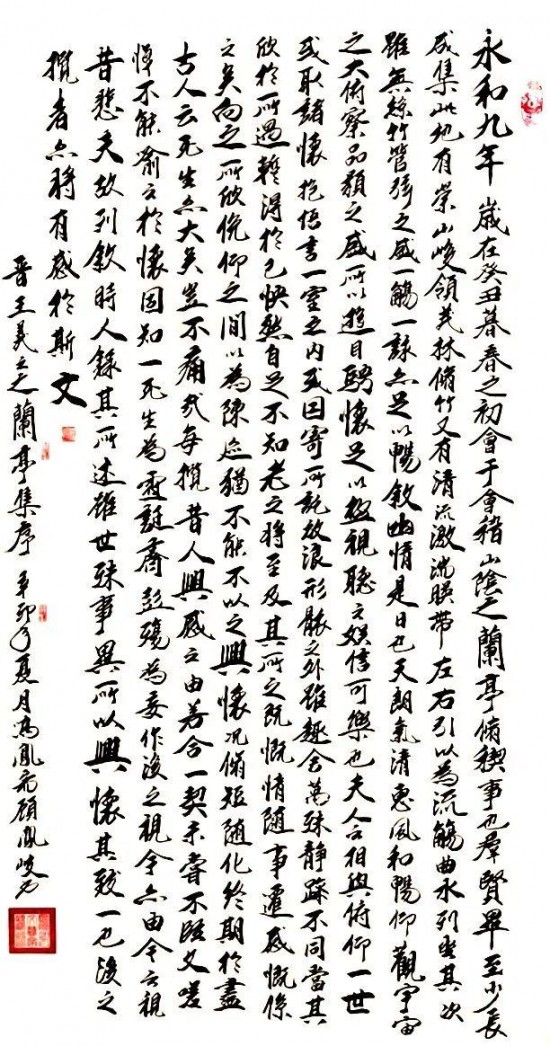 永和九年歲在癸丑暮春之初會于會稽山陰之蘭亭脩稧事也羣賢畢至少長
咸集此地有崇山峻領茂林脩竹又有清流激湍暎帶左右引以為流觴曲水列坐其次
雖無絲竹管弦之盛一觴一詠亦足以暢敘幽情是日也天朗氣清惠風和暢仰觀宇宙
之大俯察品類之盛所以遊目騁懷足以極視聽之娛信可樂也夫人之相與俯仰一世
或取諸懷抱悟言一室之內或因寄所託放浪形骸之外雖趣舍萬殊靜躁不同當其
欣於所遇暫得於己快然自足不知老之將至及其所之既情隨事遷感慨係
之矣向之所欣俛仰之間以為陳迹猶不能不以之興懷況脩短隨化終期於盡
古人云死生亦大矣豈不痛哉每攬昔人興感之由若合一契未嘗不臨文嗟
悼不能喻之於懷固知一死生為虛誕齊彭殤為妄作後之視今亦由今之視
昔悲夫故列敘時人錄其所述雖世殊事異所以興懷其致一也後之
攬者亦將有感於斯文
晉王羲之蘭亭集序 辛卯年夏月 顧鳳岐